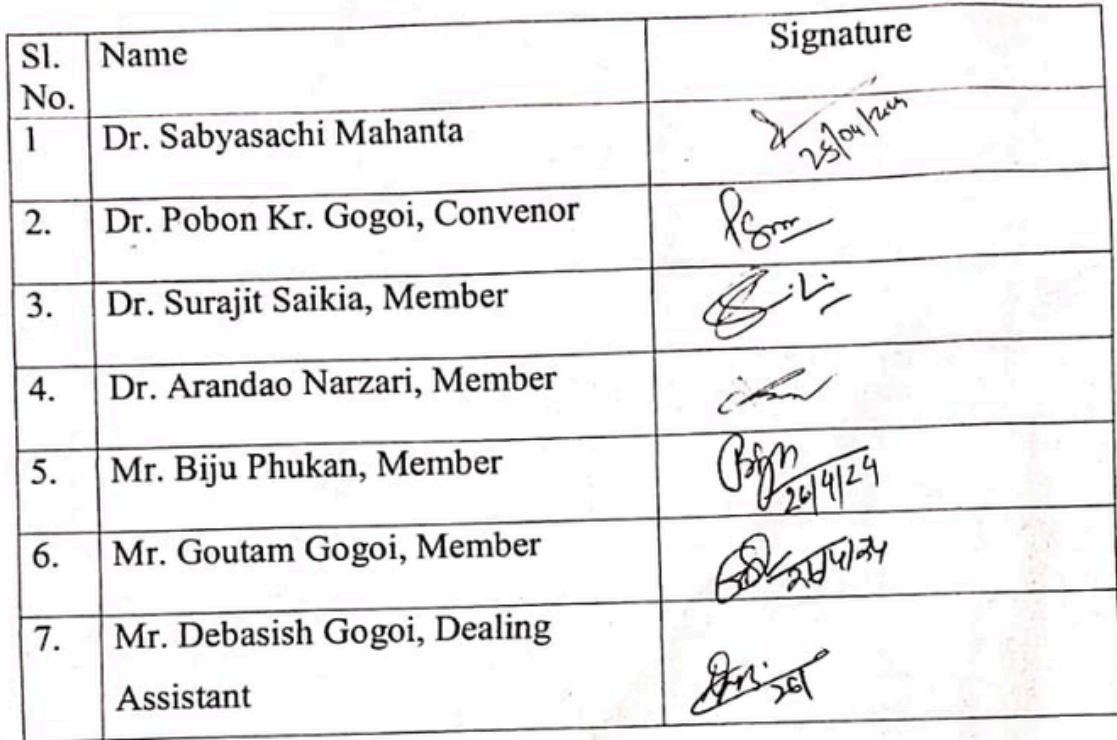 Sl. No. Name Signature
1 Dr. Sabyasachi Mahanta
2. Dr. Pobon Kr. Gogoi, Convenor
3. Dr. Surajit Saikia, Member
4. Dr. Arandao Narzari, Member
5. Mr. Biju Phukan, Member Biju
26/4/24
6. Mr. Goutam Gogoi, Member
26/4/24
7. Mr. Debasish Gogoi, Dealing
Assistant
26/